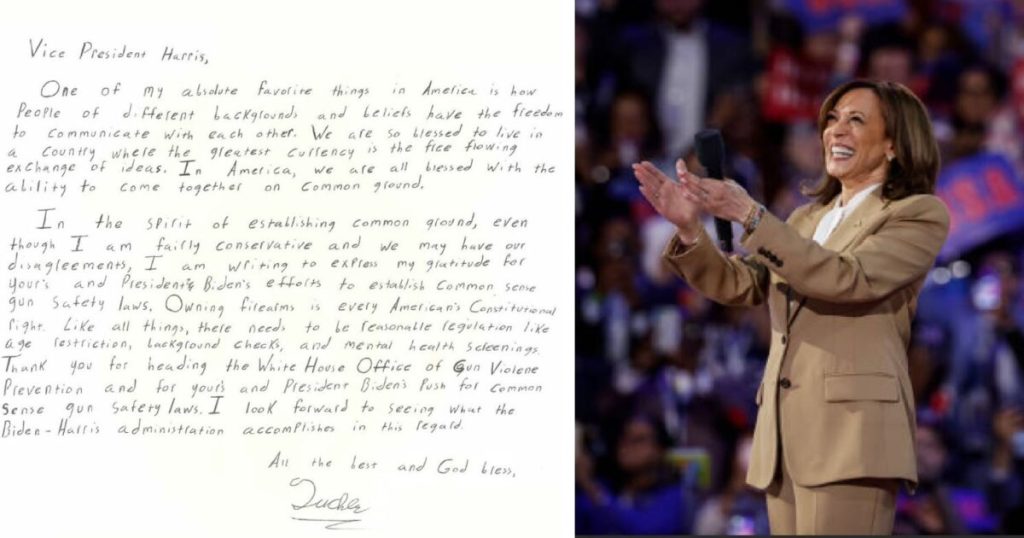 Vice President Harris,
One of my absolute favorite things in America is how
People of different backgrounds and beliefs have the freedom
to communicate with each other. We are so blessed to live in
a Country where the greatest currency is the free flowing
exchange of ideas. In America, we are all blessed with the
ability to come together on common ground.
In the spirit of establishing common ground, even
though I am fairly conservative and we may have our
disagreements, I am writing to express my gratitude for
your's and President's Biden's efforts to establish Common sense
gun safety laws. Owning firearms is every American's Constitutional
right. Like all things, there needs to be reasonable regulation like
age restriction, background checks, and mental health sceenings.
Thank you for heading the White House Office of Gun Violene
Prevention and for your's and President Biden's Push for Common
Sense gun safety laws. I look forward to seeing what the
Biden-Harris administration accomplishes in this regard.
All the best and God bless,